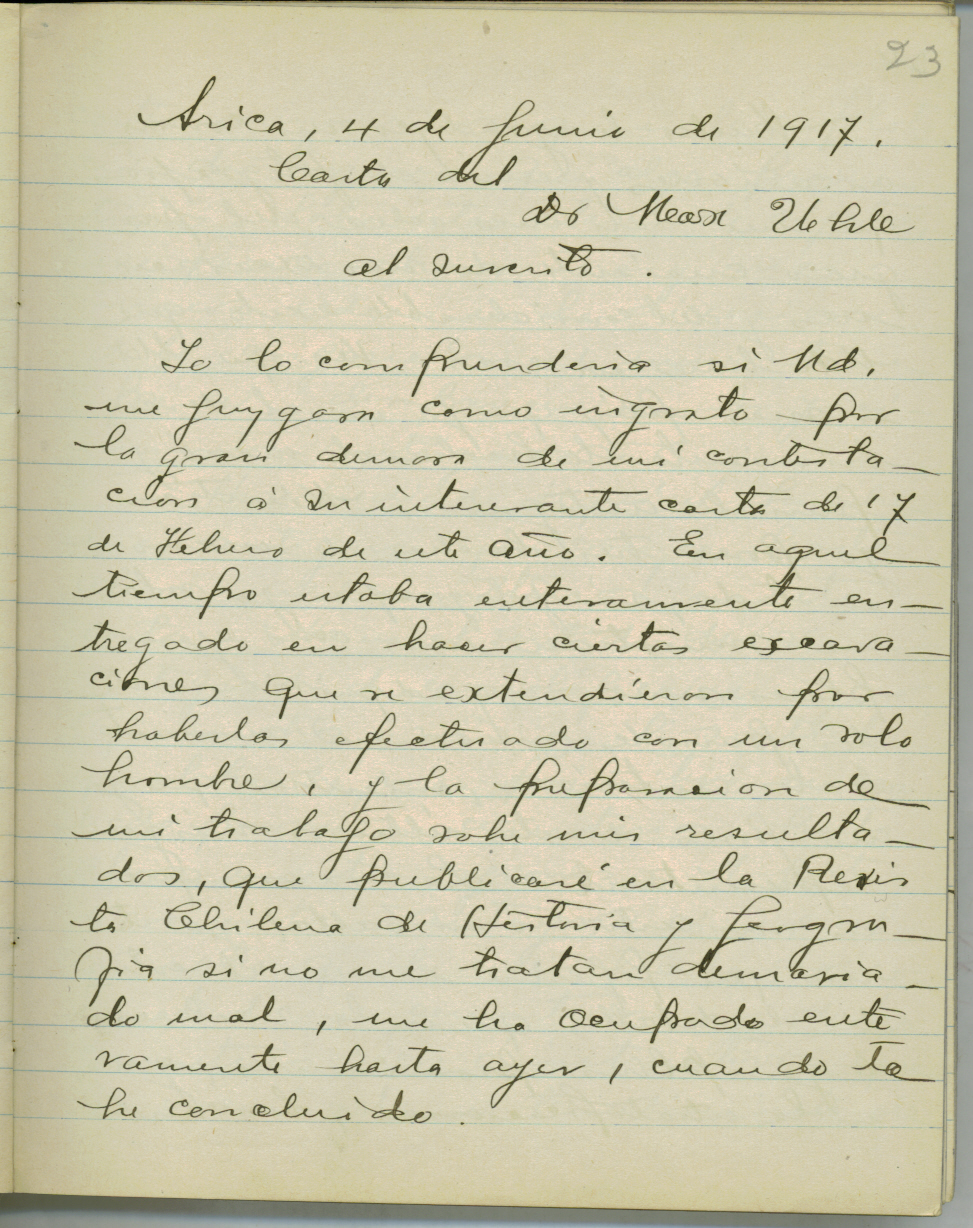 23
Arica, 4 de Junio de 1917.
Carta del
Dr Max Uhle
al suscrito.
Yo lo comprenderia si Ud.
me juzgara como ingrato por
la gran demora de mi contesta-
cion á su interesante carta de 17
de Febrero de este año. En aquel
tiempo estaba enteramente en-
tregado en hacer ciertas excava-
ciones que se extendieron por
haberlas efectuado con un solo
hombre, y la preparacion de
mi trabajo sobre mis resulta-
dos, que publicaré en la Revis
ta Chilena de Historia y Geogra-
fia si no me tratan demasia-
do mal, me ha ocupado ente
ramente hasta ayer, cuando la
he concluido.